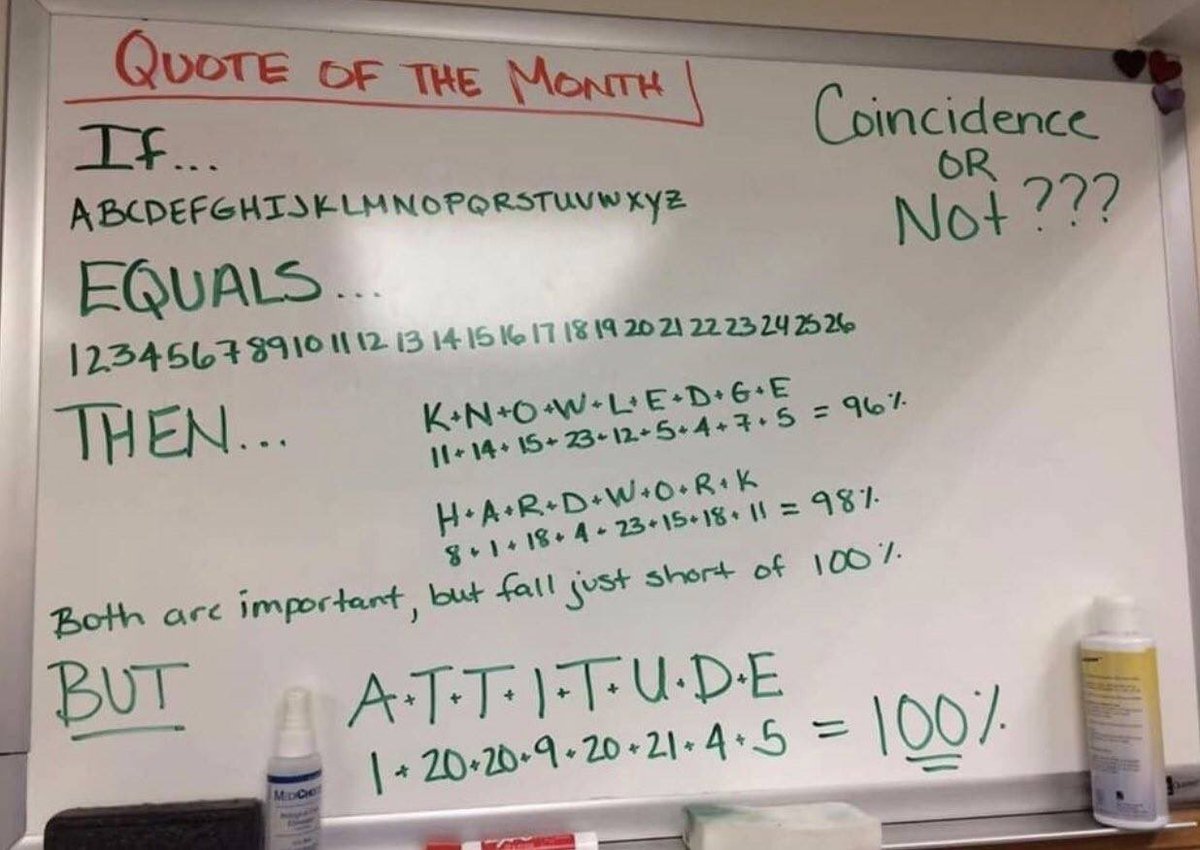 QUOTE OF THE MONTH
Coincidence
OR
Not ???
If...
ABCDEFGHIJKLMNOPQRSTUVWXYZ
EQUALS...
1 2 3 4 5 6 7 8 9 10 11 12 13 14 15 16 17 18 19 20 21 22 23 24 25 26
THEN...
K+N+O+W+L+E+D+G+E
11+14+15+23+12+5+4+7+5 = 96%
H+A+R+D+W+O+R+K
8+1+18+4+23+15+18+11 = 98%
Both are important, but fall just short of 100%.
BUT
A+T+T+I+T+U+D+E
1+20+20+9+20+21+4+5 = 100%